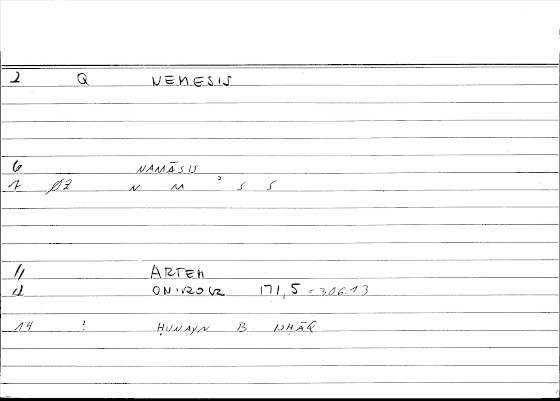 2 Q NEMESIS
6 NAMĀSIS
7 Ø7 N M ʾ S S
11 ARTEM
12 ONIROCR 171,5 = 306.13
14 ? ḤUNAYN B. ISḤĀQ